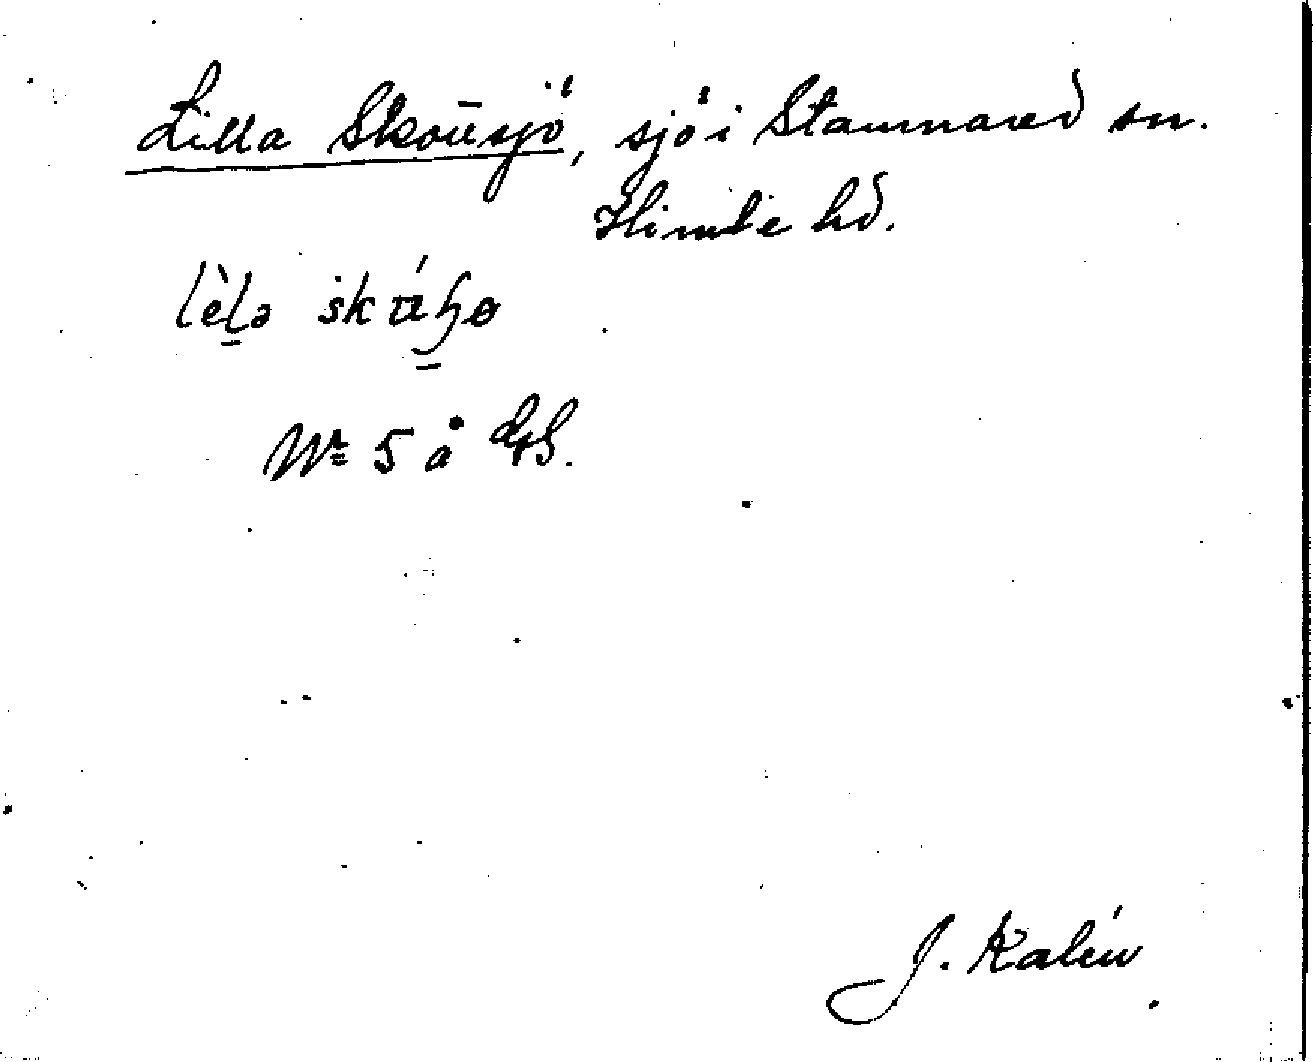 Lilla Skousjö, sjö i Stamnared sn.
Himle hd.
lèla skúhø
Nr 5 å
J. Kalén